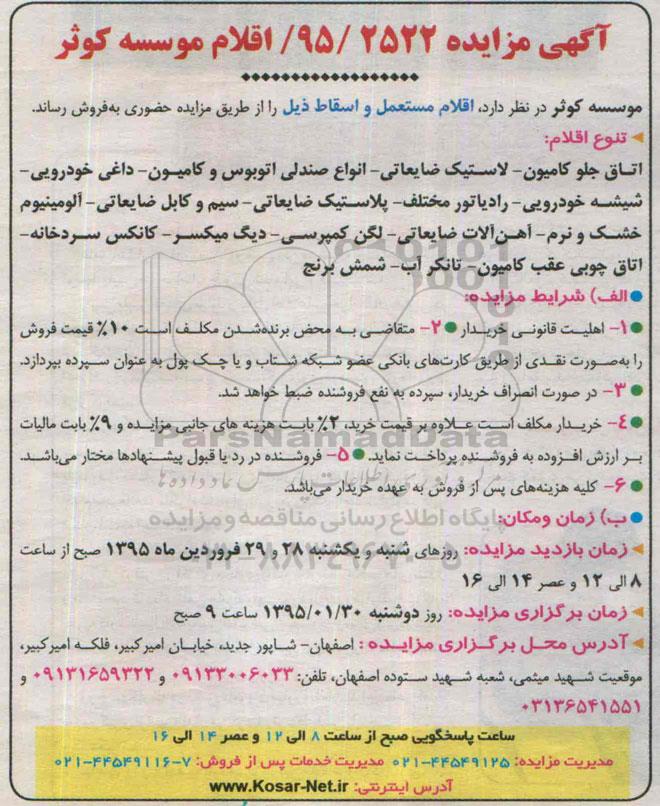 آگهی مزایده ۲۵۲۲ /۹۵/ اقلام موسسه کوثر
موسسه کوثر در نظر دارد، اقلام مستعمل و اسقاط ذیل را از طریق مزایده حضوری به‌فروش رساند.
تنوع اقلام:
اتاق جلو کامیون- لاستیک ضایعاتی- انواع صندلی اتوبوس و کامیون- داغی خودرویی-
شیشه خودرویی- رادیاتور مختلف- پلاستیک ضایعاتی- سیم و کابل ضایعاتی- آلومینیوم
خشک و نرم- آهن‌آلات ضایعاتی- لگن کمپرسی- دیگ میکسر- کانکس سردخانه-
اتاق چوبی عقب کامیون- تانکر آب- شمش برنج
الف) شرایط مزایده:
۱- اهلیت قانونی خریدار ۲- متقاضی به محض برنده‌شدن مکلف است ۱۰٪ قیمت فروش
را به‌صورت نقدی از طریق کارت‌های بانکی عضو شبکه شتاب و یا چک پول به عنوان سپرده بپردازد.
۳- در صورت انصراف خریدار، سپرده به نفع فروشنده ضبط خواهد شد.
۴- خریدار مکلف است علاوه بر قیمت خرید، ۲٪ بابت هزینه های جانبی مزایده و ۹٪ بابت مالیات
بر ارزش افزوده به فروشنده پرداخت نماید. ۵- فروشنده در رد یا قبول پیشنهادها مختار می‌باشد.
۶- کلیه هزینه‌های پس از فروش به عهده خریدار می‌باشد.
ParsNamadData
پایگاه اطلاع رسانی مناقصه و مزایده
ب) زمان ومکان:
زمان بازدید مزایده: روزهای شنبه و یکشنبه ۲۸ و ۲۹ فروردین ماه ۱۳۹۵ صبح از ساعت
۸ الی ۱۲ و عصر ۱۴ الی ۱۶
زمان برگزاری مزایده: روز دوشنبه ۱۳۹۵/۰۱/۳۰ ساعت ۹ صبح
آدرس محل برگزاری مزایده : اصفهان- شاپور جدید، خیابان امیرکبیر، فلکه امیرکبیر،
موقعیت شهید میثمی، شعبه شهید ستوده اصفهان، تلفن: ۰۹۱۳۳۰۰۶۰۳۳ و ۰۹۱۳۱۶۵۹۳۲۲ و
۰۳۱۳۶۵۴۱۵۵۱
ساعت پاسخگویی صبح از ساعت ۸ الی ۱۲ و عصر ۱۴ الی ۱۶
مدیریت مزایده: ۴۴۵۴۹۱۲۵-۰۲۱ مدیریت خدمات پس از فروش: ۷-۴۴۵۴۹۱۱۶-۰۲۱
آدرس اینترنتی: www.Kosar-Net.ir